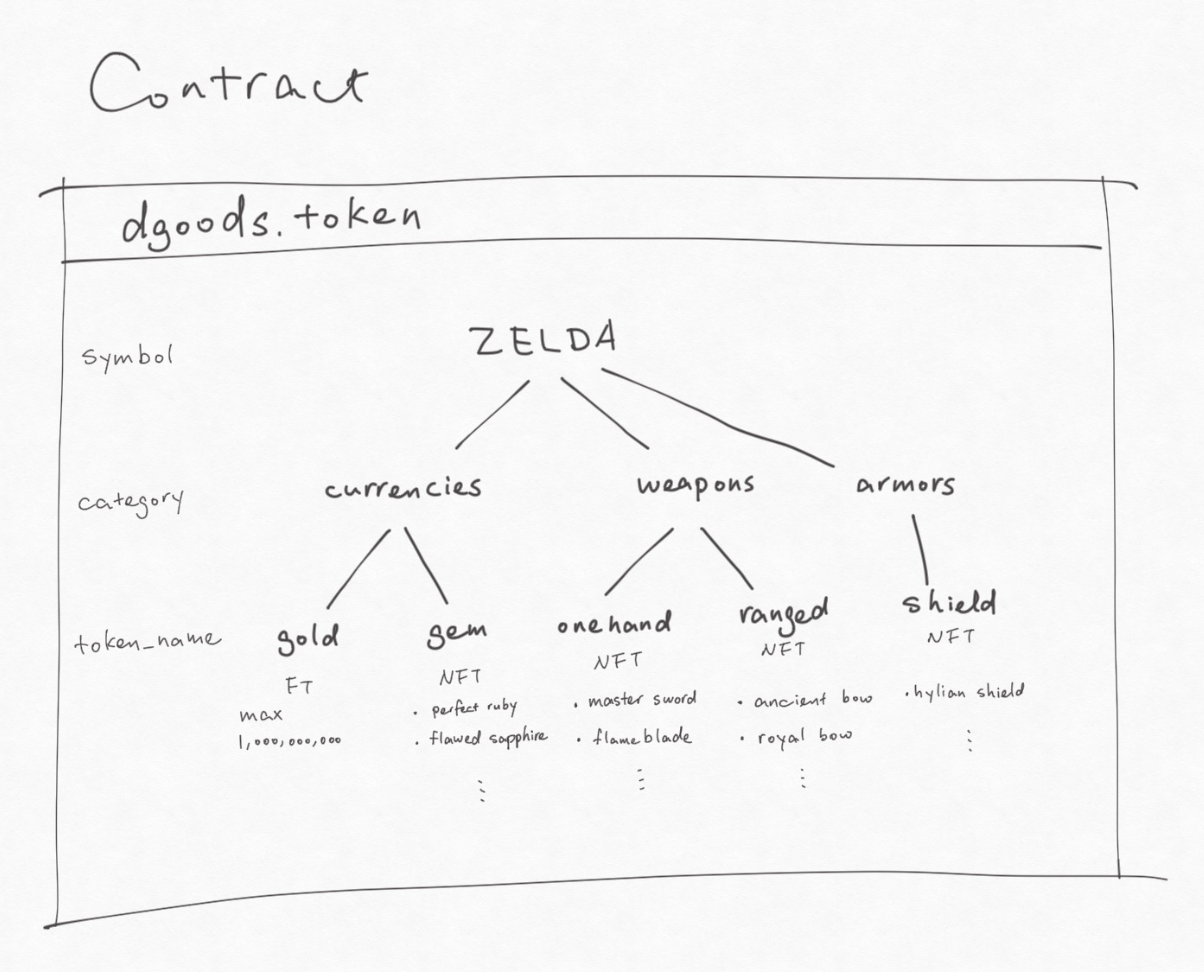 Contract
dgoods.token
symbol
ZELDA
category
currencies
weapons
armors
token_name
gold
FT
max
1,000,000,000
gem
NFT
· perfect ruby
· flawed sapphire
onehand
NFT
· master sword
· flameblade
ranged
NFT
· ancient bow
· royal bow
shield
NFT
· hylian shield